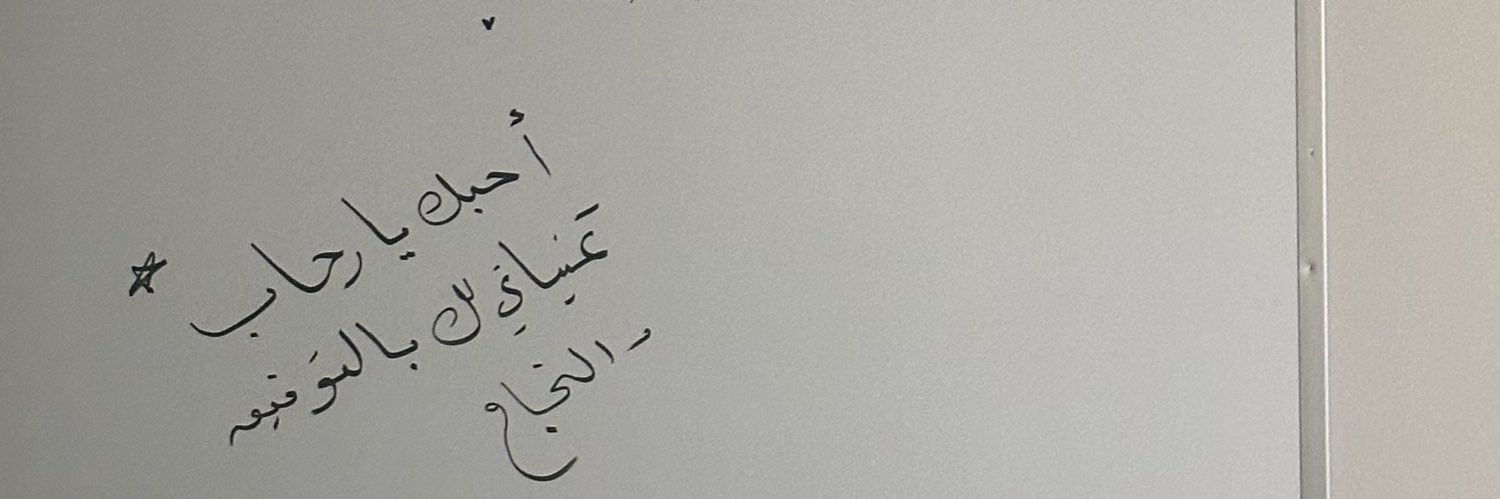 أحبك يا رحاب
تمنياتي لك بالتوفيق
والنجاح